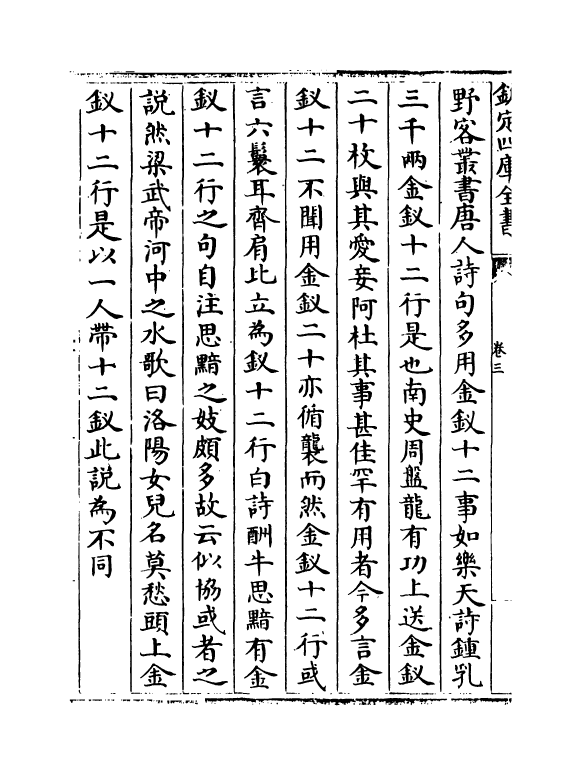 欽定四庫全書
卷三
野客叢書唐人詩句多用金釵十二事如樂天詩鍾乳
三千兩金釵十二行是也南史周盤龍有功上送金釵
二十枚與其愛妾阿杜其事甚佳罕有用者今多言金
釵十二不聞用金釵二十亦循襲而然金釵十二行或
言六鬟耳齊肩比立為釵十二行白詩酬牛思黯有金
釵十二行之句自注思黯之妓頗多故云似協或者之
說然梁武帝河中之水歌曰洛陽女兒名莫愁頭上金
釵十二行是以一人帶十二釵此說為不同